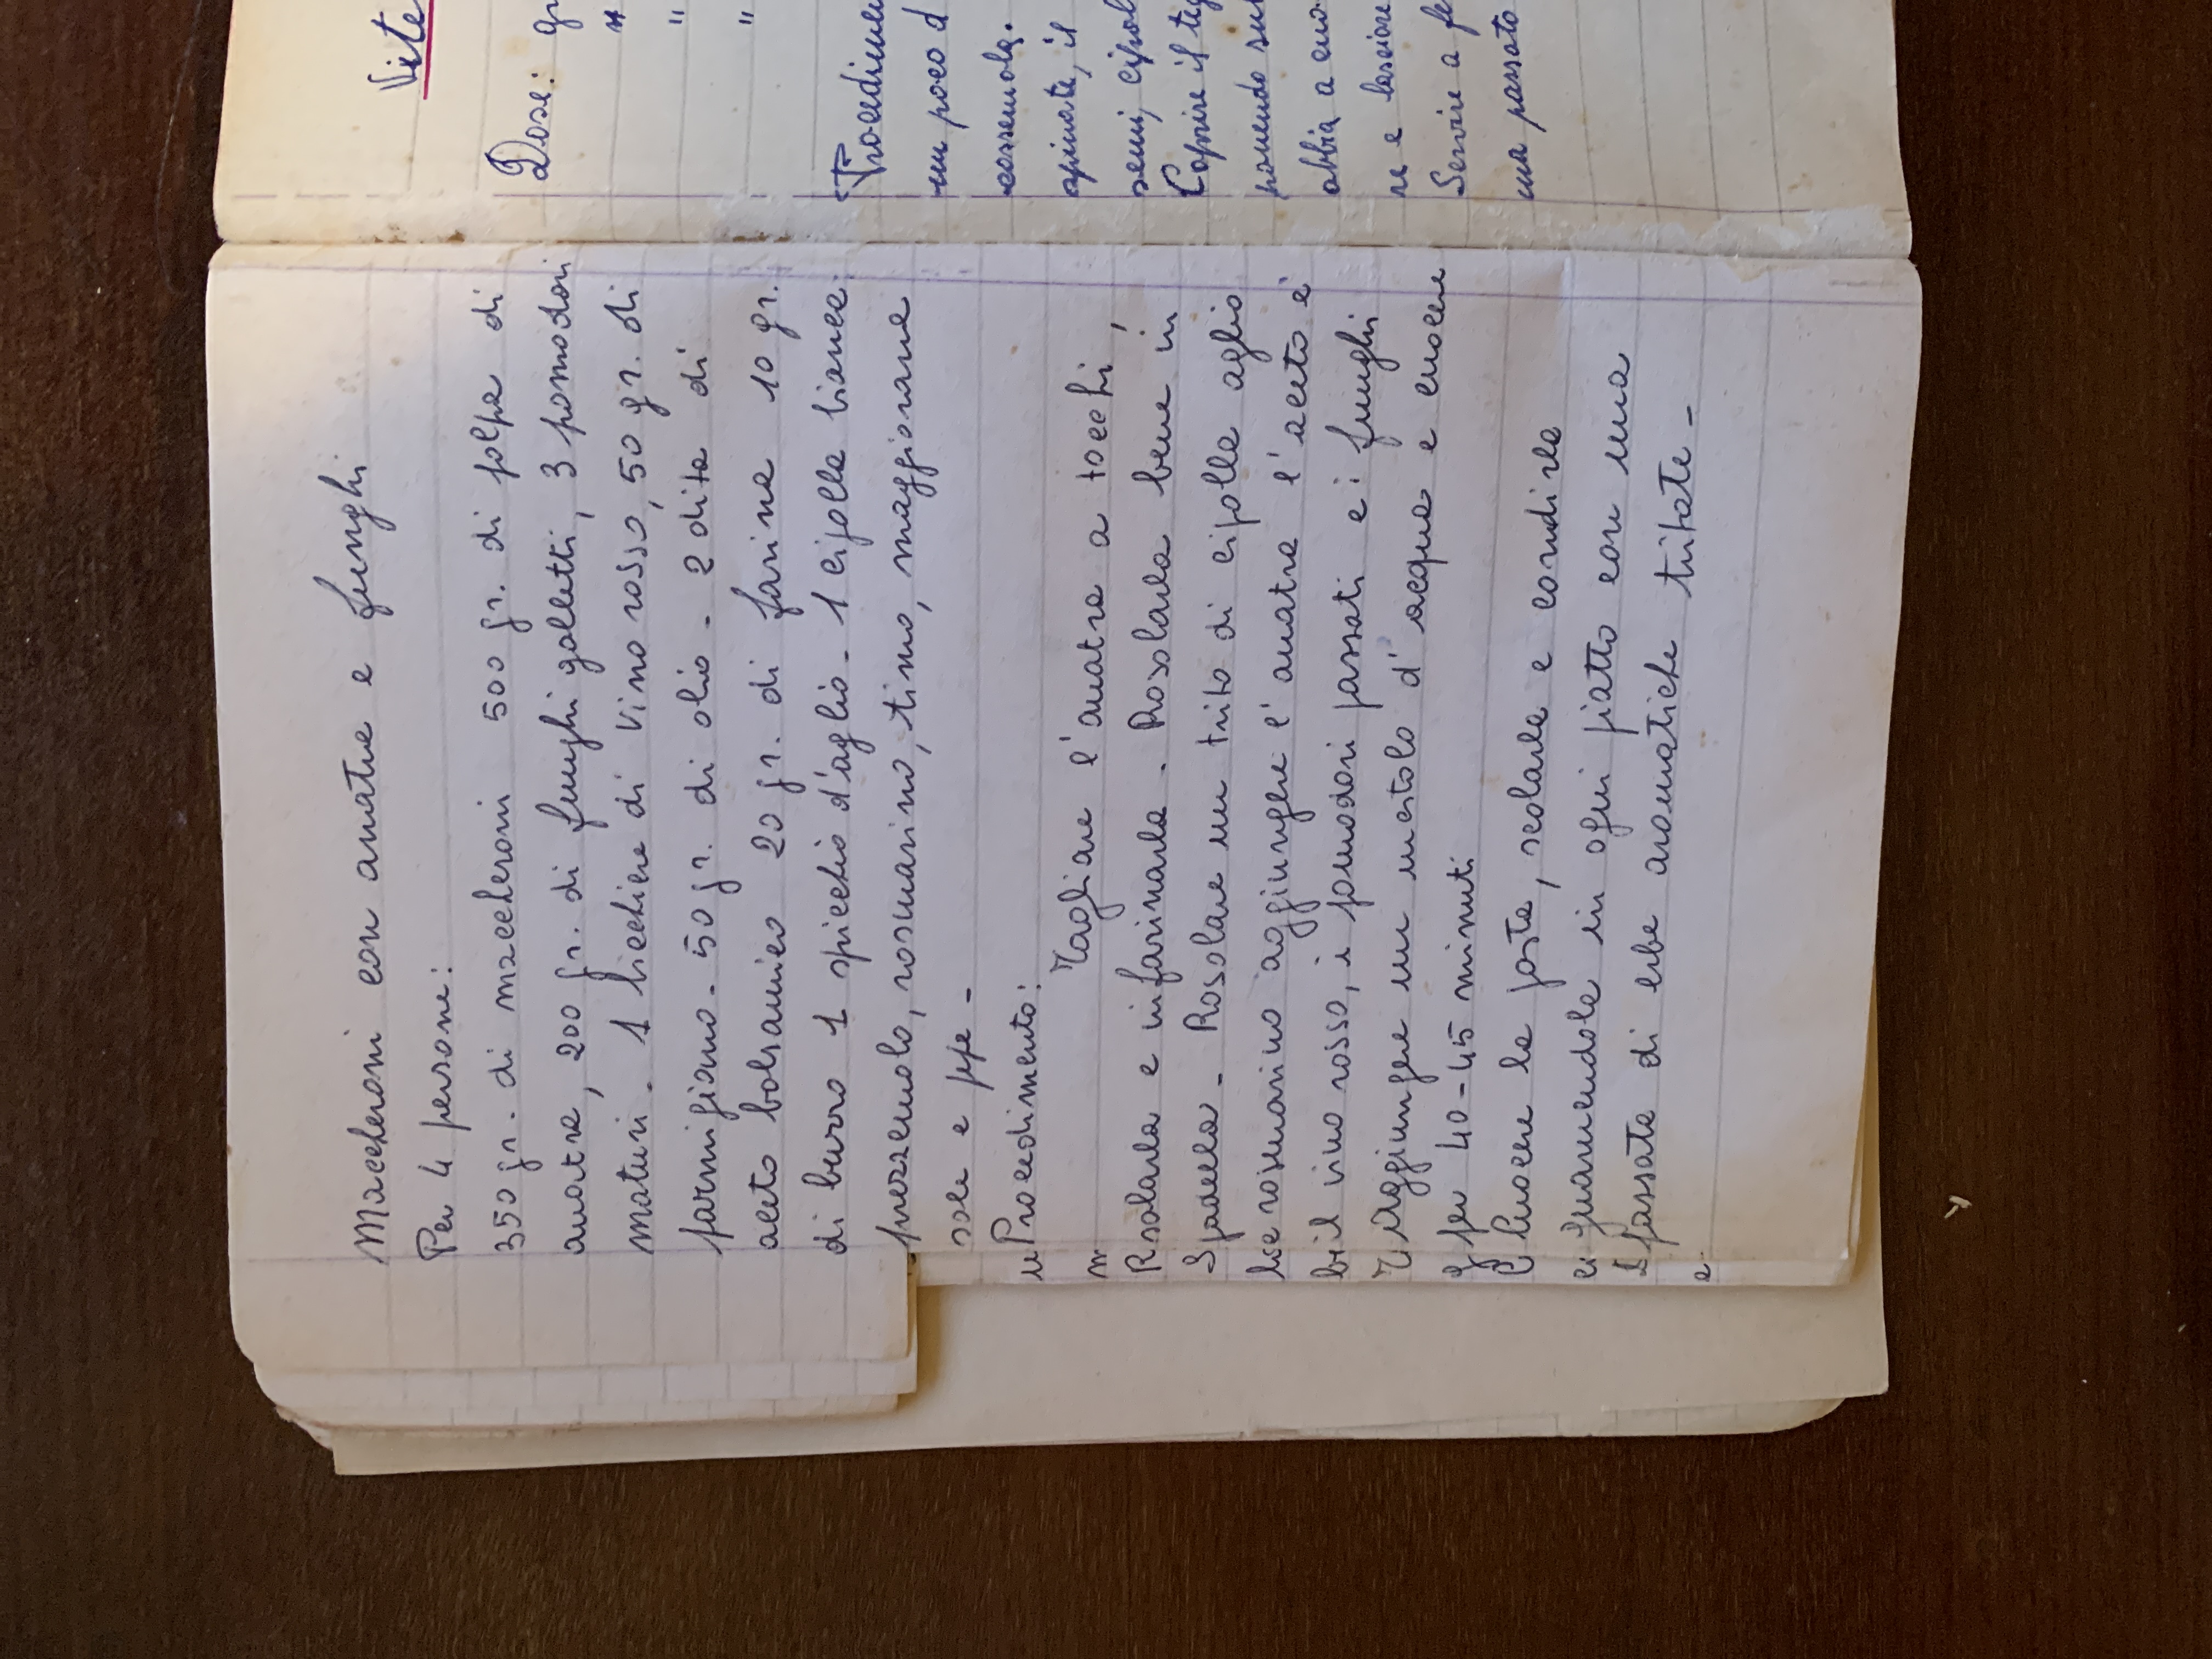 Maccheroni con anatra e funghi
Per 4 persone:
350 gr. di maccheroni 500 gr. di polpa di
anatra, 200 gr. di funghi galletti, 3 pomodori
maturi - 1 bicchiere di vino rosso, 50 gr. di
parmigiano - 50 gr. di olio - 2 dita di
aceto balsamico 20 gr. di farina 10 gr.
di burro 1 spicchio d'aglio - 1 cipolla bianca
prezzemolo, rosmarino, timo, maggiorana
sale e pepe -
Procedimento:
Tagliare l'anatra a tocchi,
salarla e infarinarla. Rosolarla bene in
padella - Rosolare un trito di cipolla aglio
e rosmarino aggiungere l'anatra l'aceto e
il vino rosso, i pomodori passati e i funghi
Aggiungere un mestolo d'acqua e cuocere
per 40-45 minuti
Cuocere la pasta, scolarla e condirla
guarnendola in ogni piatto con una
passata di erbe aromatiche tritate -
u
m
R
S
b
b
T
g
C
ci
e
Vite
Dose: gr
"
"
Procedimen
un poco d
cossemola.
spinate, il
semi, cipol
Coprire il teg
ponendo sul
abbia a cuo
re e lasciare
Servire a fe
ma passato